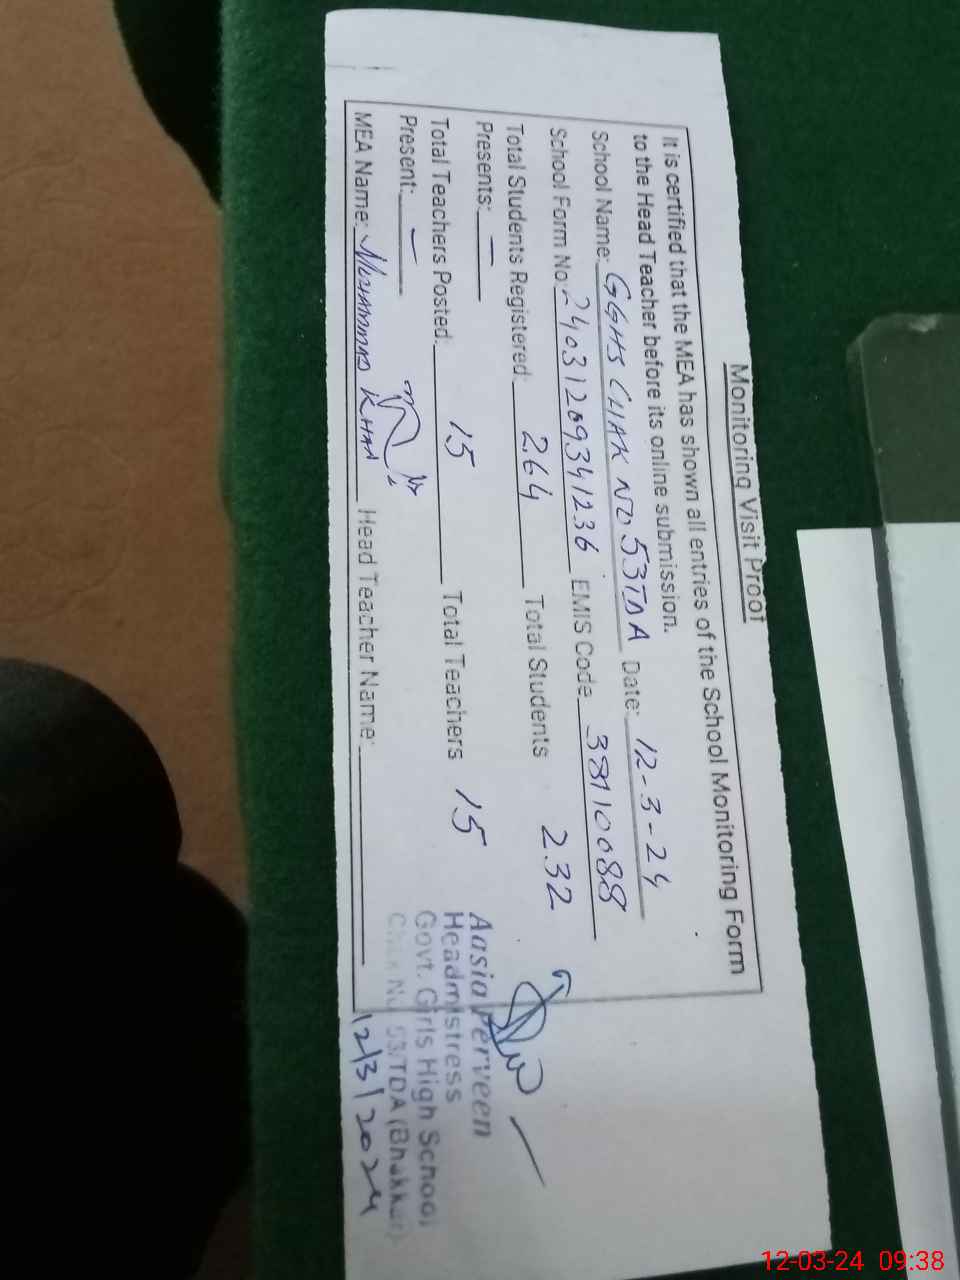 Monitoring Visit Proof
It is certified that the MEA has shown all entries of the School Monitoring Form
to the Head Teacher before its online submission.
School Name: GGHS CHAK NO 53TDA Date: 12-3-24
School Form No: 24031209341236 EMIS Code 38110088
Total Students Registered: 264 Total Students 232
Presents: —
Total Teachers Posted: 15 Total Teachers 15
Present: —
MEA Name: MUHAMMAD KHAN Head Teacher Name:
Aasia Perveen
Headmistress
Govt. Girls High School
Chak No 53/TDA (Bhakkar)
12/3/2024
12-03-24 09:38